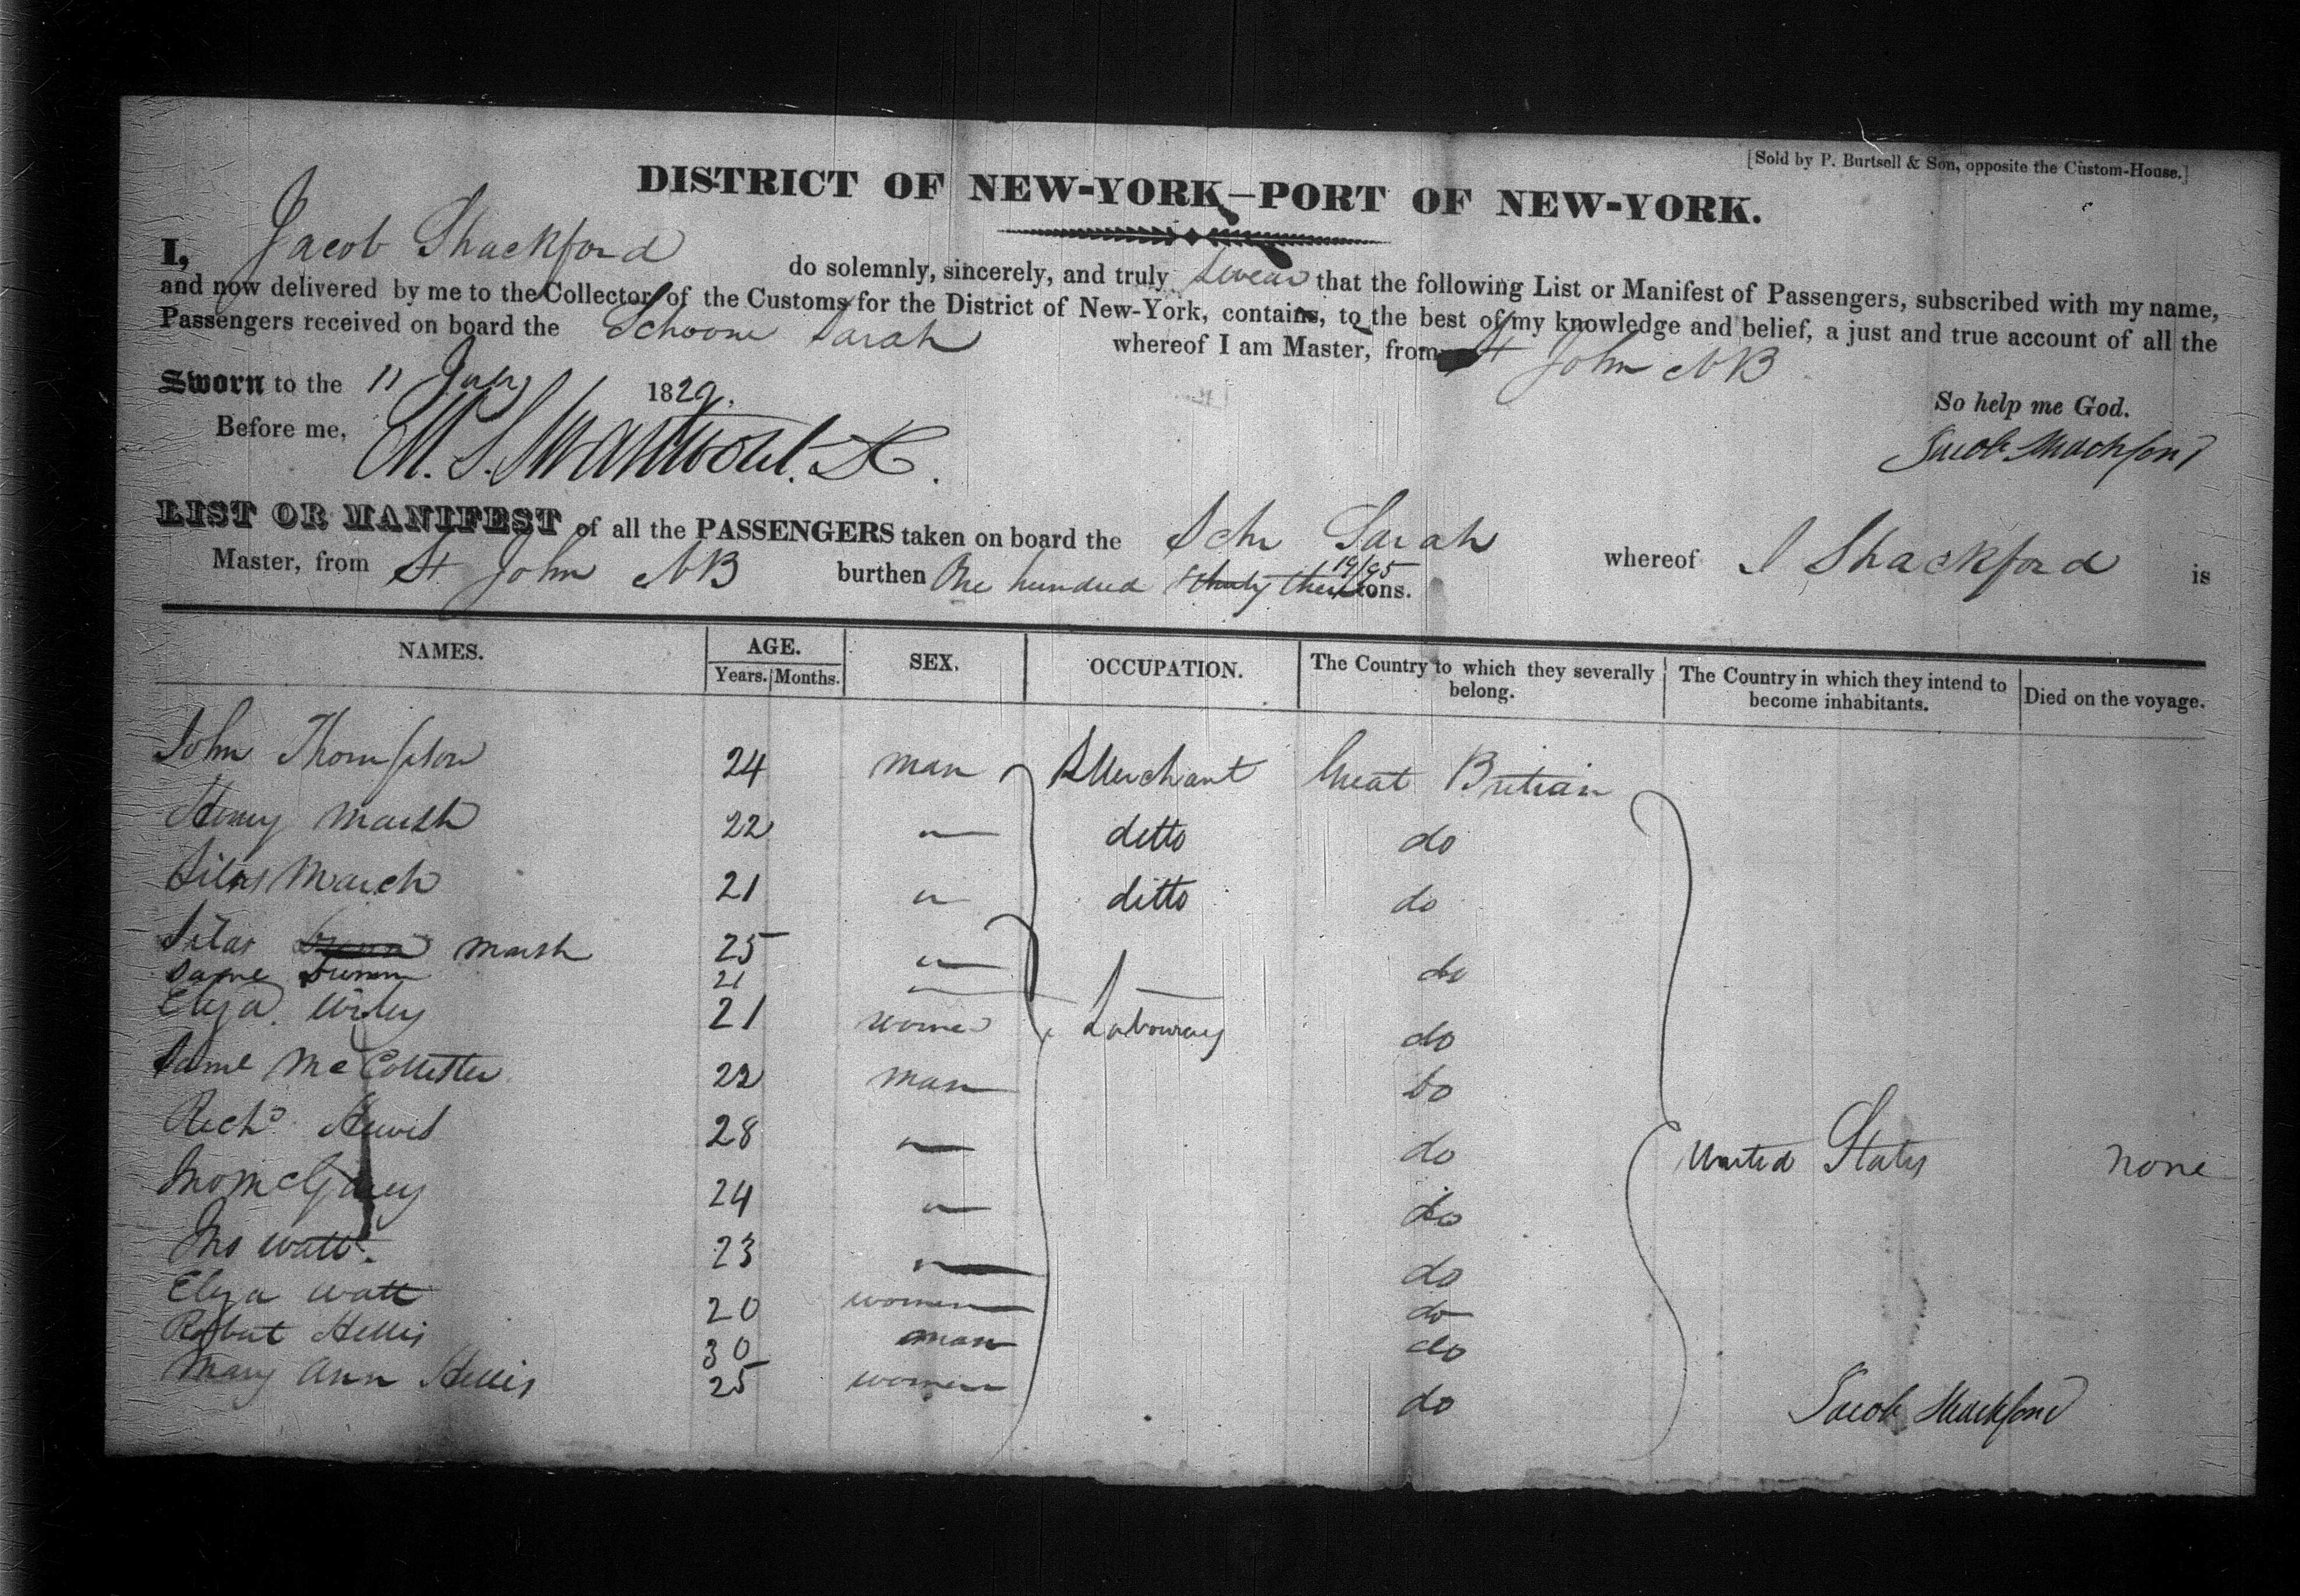 [Sold by P. Burtsell & Son, opposite the Custom-House.]
DISTRICT OF NEW-YORK—PORT OF NEW-YORK.
I, Jacob Shackford do solemnly, sincerely, and truly swear that the following List or Manifest of Passengers, subscribed with my name,
and now delivered by me to the Collector of the Customs for the District of New-York, contains, to the best of my knowledge and belief, a just and true account of all the
Passengers received on board the Schoone Sarah whereof I am Master, from St John NB
Sworn to the 11 July 1829,
So help me God.
Before me, M. S. Swartwout. DC.
Jacob Shackford
LIST OR MANIFEST of all the PASSENGERS taken on board the Schr Sarah whereof J Shackford is
Master, from St John NB burthen One hundred 19/95 tons.
NAMES. AGE. SEX. OCCUPATION. The Country to which they severally belong. The Country in which they intend to become inhabitants. Died on the voyage.
Years. Months.
John Thompson 24 man Merchant Great Britian
Henry Marsh 22 " ditto do
Silas March 21 " ditto do
Silas Marsh 25 " do
Same Dunn 21
Eliza Wiley 21 women Labourers do
Saml McCollister 22 man do
Richd Hewes 28 " do United States none
Jno McGarey 24 " do
Jno Watt 23 " do
Eliza Watt 20 women do
Robut Hellis 30 man do
Mary Ann Hellis 25 women do
Jacob Shackford